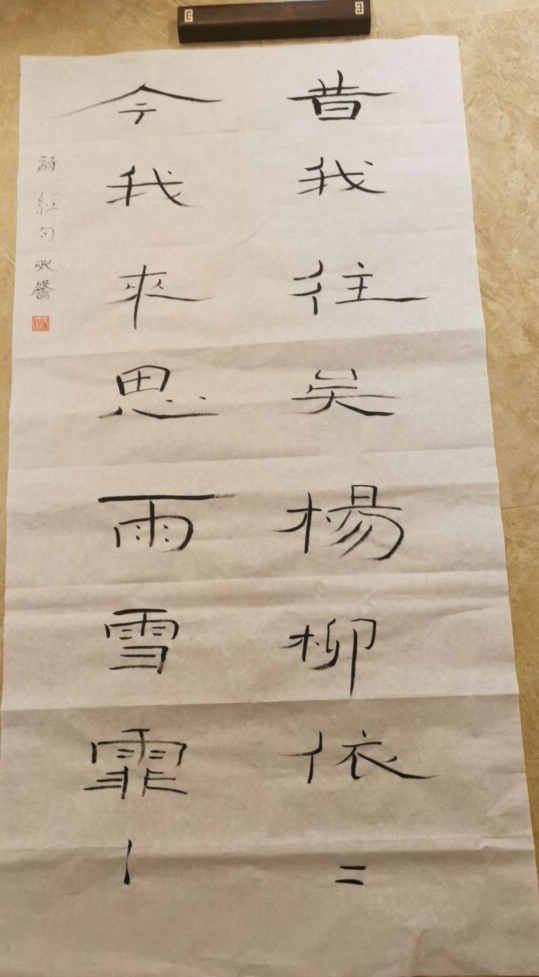 昔我往矣楊柳依〻
今我來思雨雪霏〻
詩經句